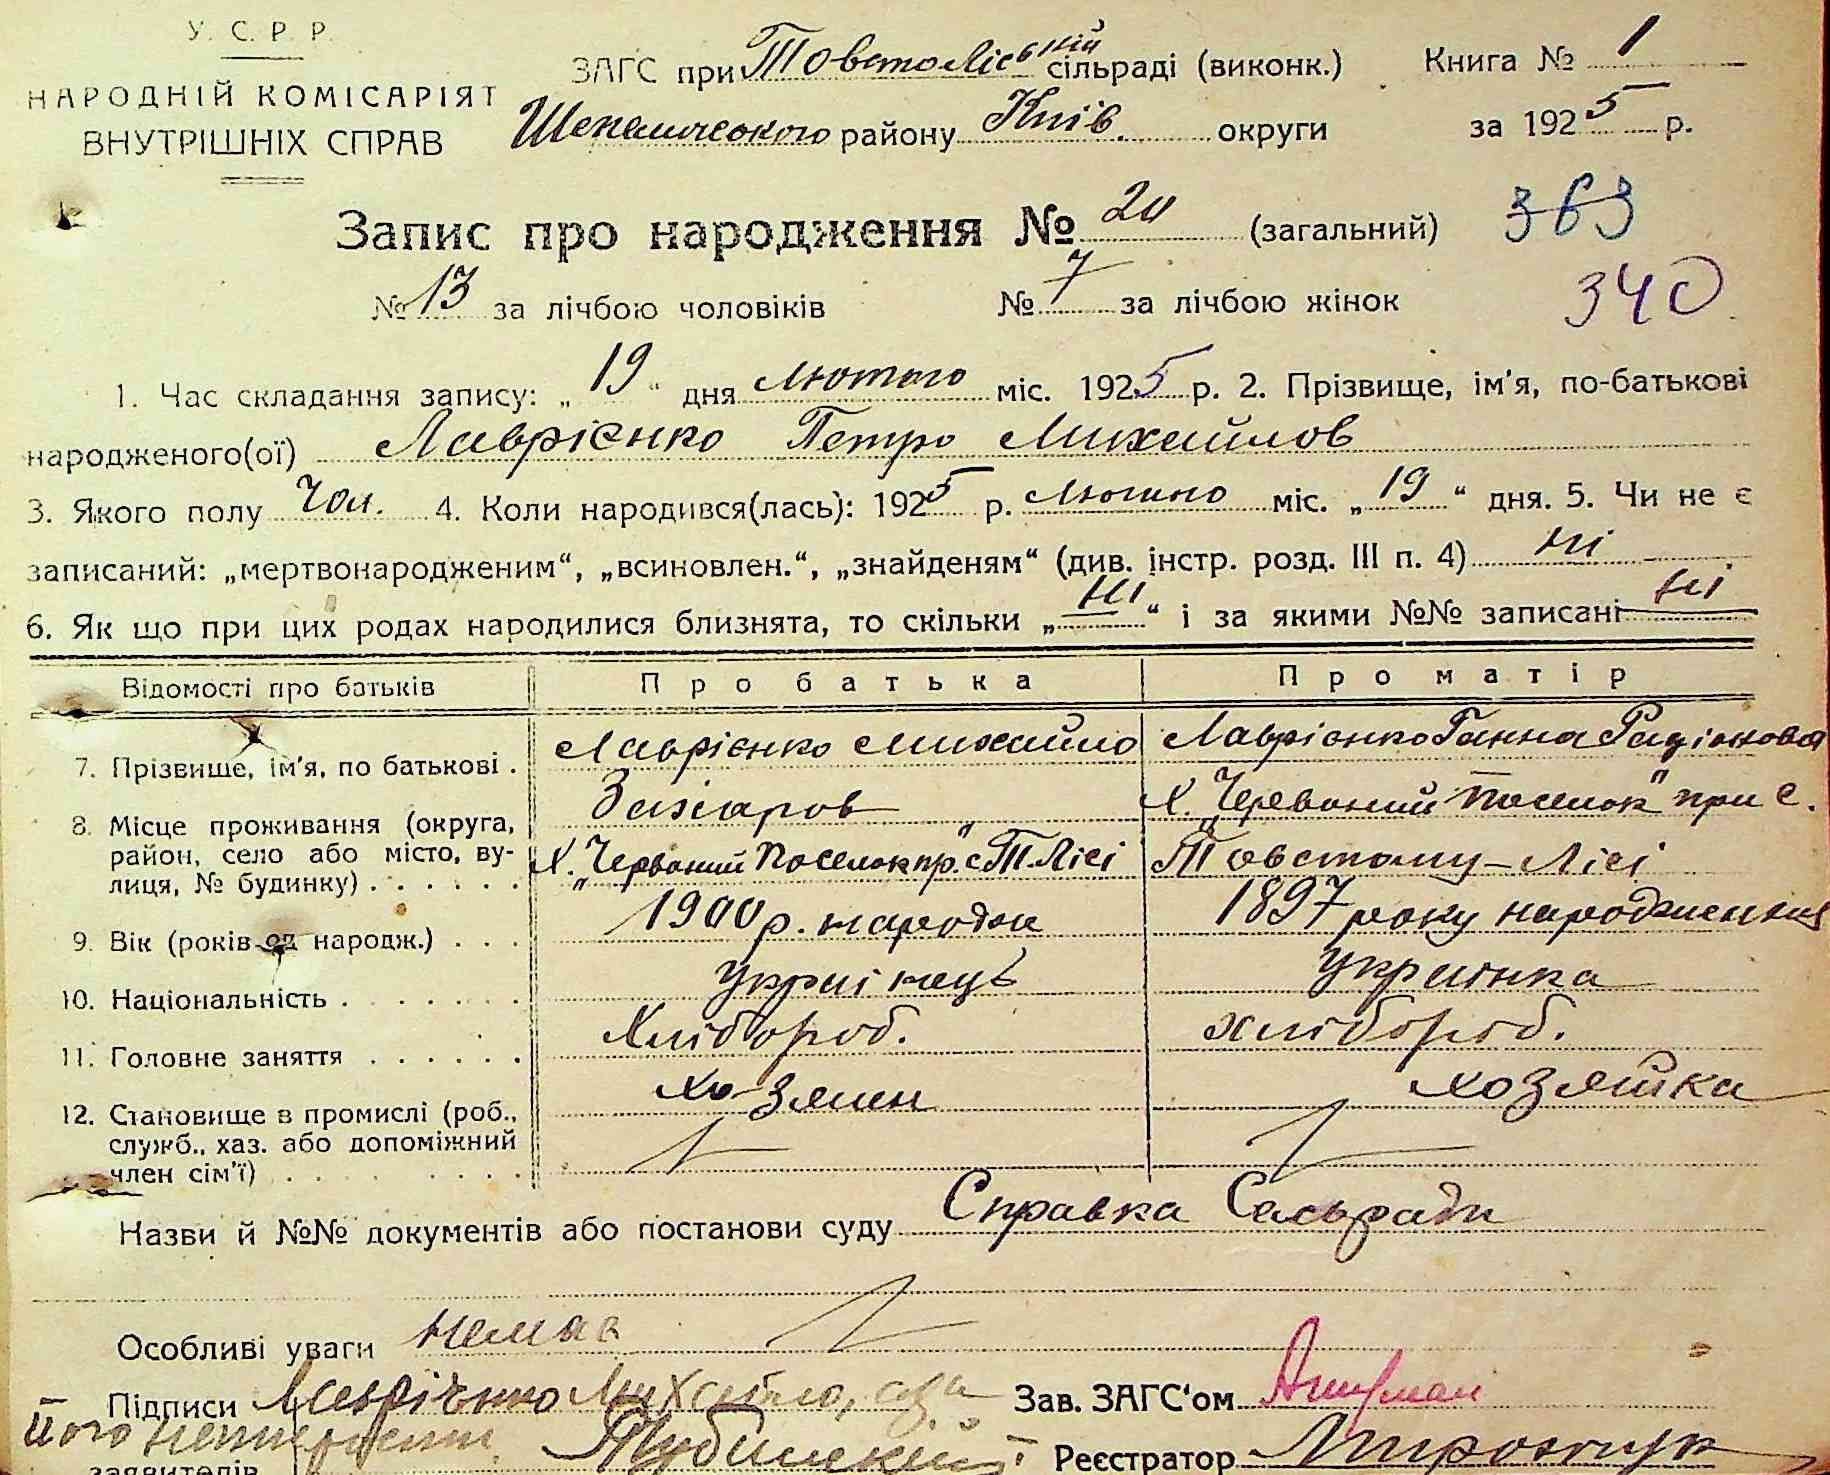 У. С. Р. Р.
НАРОДНІЙ КОМІСАРІЯТ
ВНУТРІШНІХ СПРАВ
ЗАГС при Товстоліській сільраді (виконк.) Книга № 1
Шепелицького району Київ. округи за 1925 р.
Запис про народження № 20 (загальний) 363
№ 13 за лічбою чоловіків № 7 за лічбою жінок 340
1. Час складання запису: „19“ дня лютого міс. 1925 р. 2. Прізвище, ім'я, по-батькові
народженого(ої) Лаврієнко Петро Михайлов
3. Якого полу чол. 4. Коли народився(лась): 1925 р. лютого міс. „19“ дня. 5. Чи не є
записаний: „мертвонародженим“, „всиновлен.“, „знайденям“ (див. інстр. розд. III п. 4) ні
6. Як що при цих родах народилися близнята, то скільки „ні“ і за якими №№ записані ні
Відомості про батьків Про батька Про матір
7. Прізвище, ім'я, по батькові . Лаврієнко Михайло Захаров Лаврієнко Ганна Радіонова
8. Місце проживання (округа, район, село або місто, вулиця, № будинку) . . . . . . Х. „Червоний Поселок“ пр. с. Т. Лісі Х. „Червоний Поселок“ при с. Товстому-Лісі
9. Вік (років од народж.) . . . 1900 р. народж 1897 року народження
10. Національність . . . . . . . украінець украінка
11. Головне заняття . . . . . . Хлібороб. хлібороб.
12. Становище в промислі (роб., служб., хаз. або допоміжний член сім'ї) . . . . . . . . Хозяин хозяйка
Назви й №№ документів або постанови суду Справка Сельради
Особливі уваги немає
Підписи Лаврієнко Михайло, а за Зав. ЗАГС'ом
його неписьмен. Реєстратор
заявителів